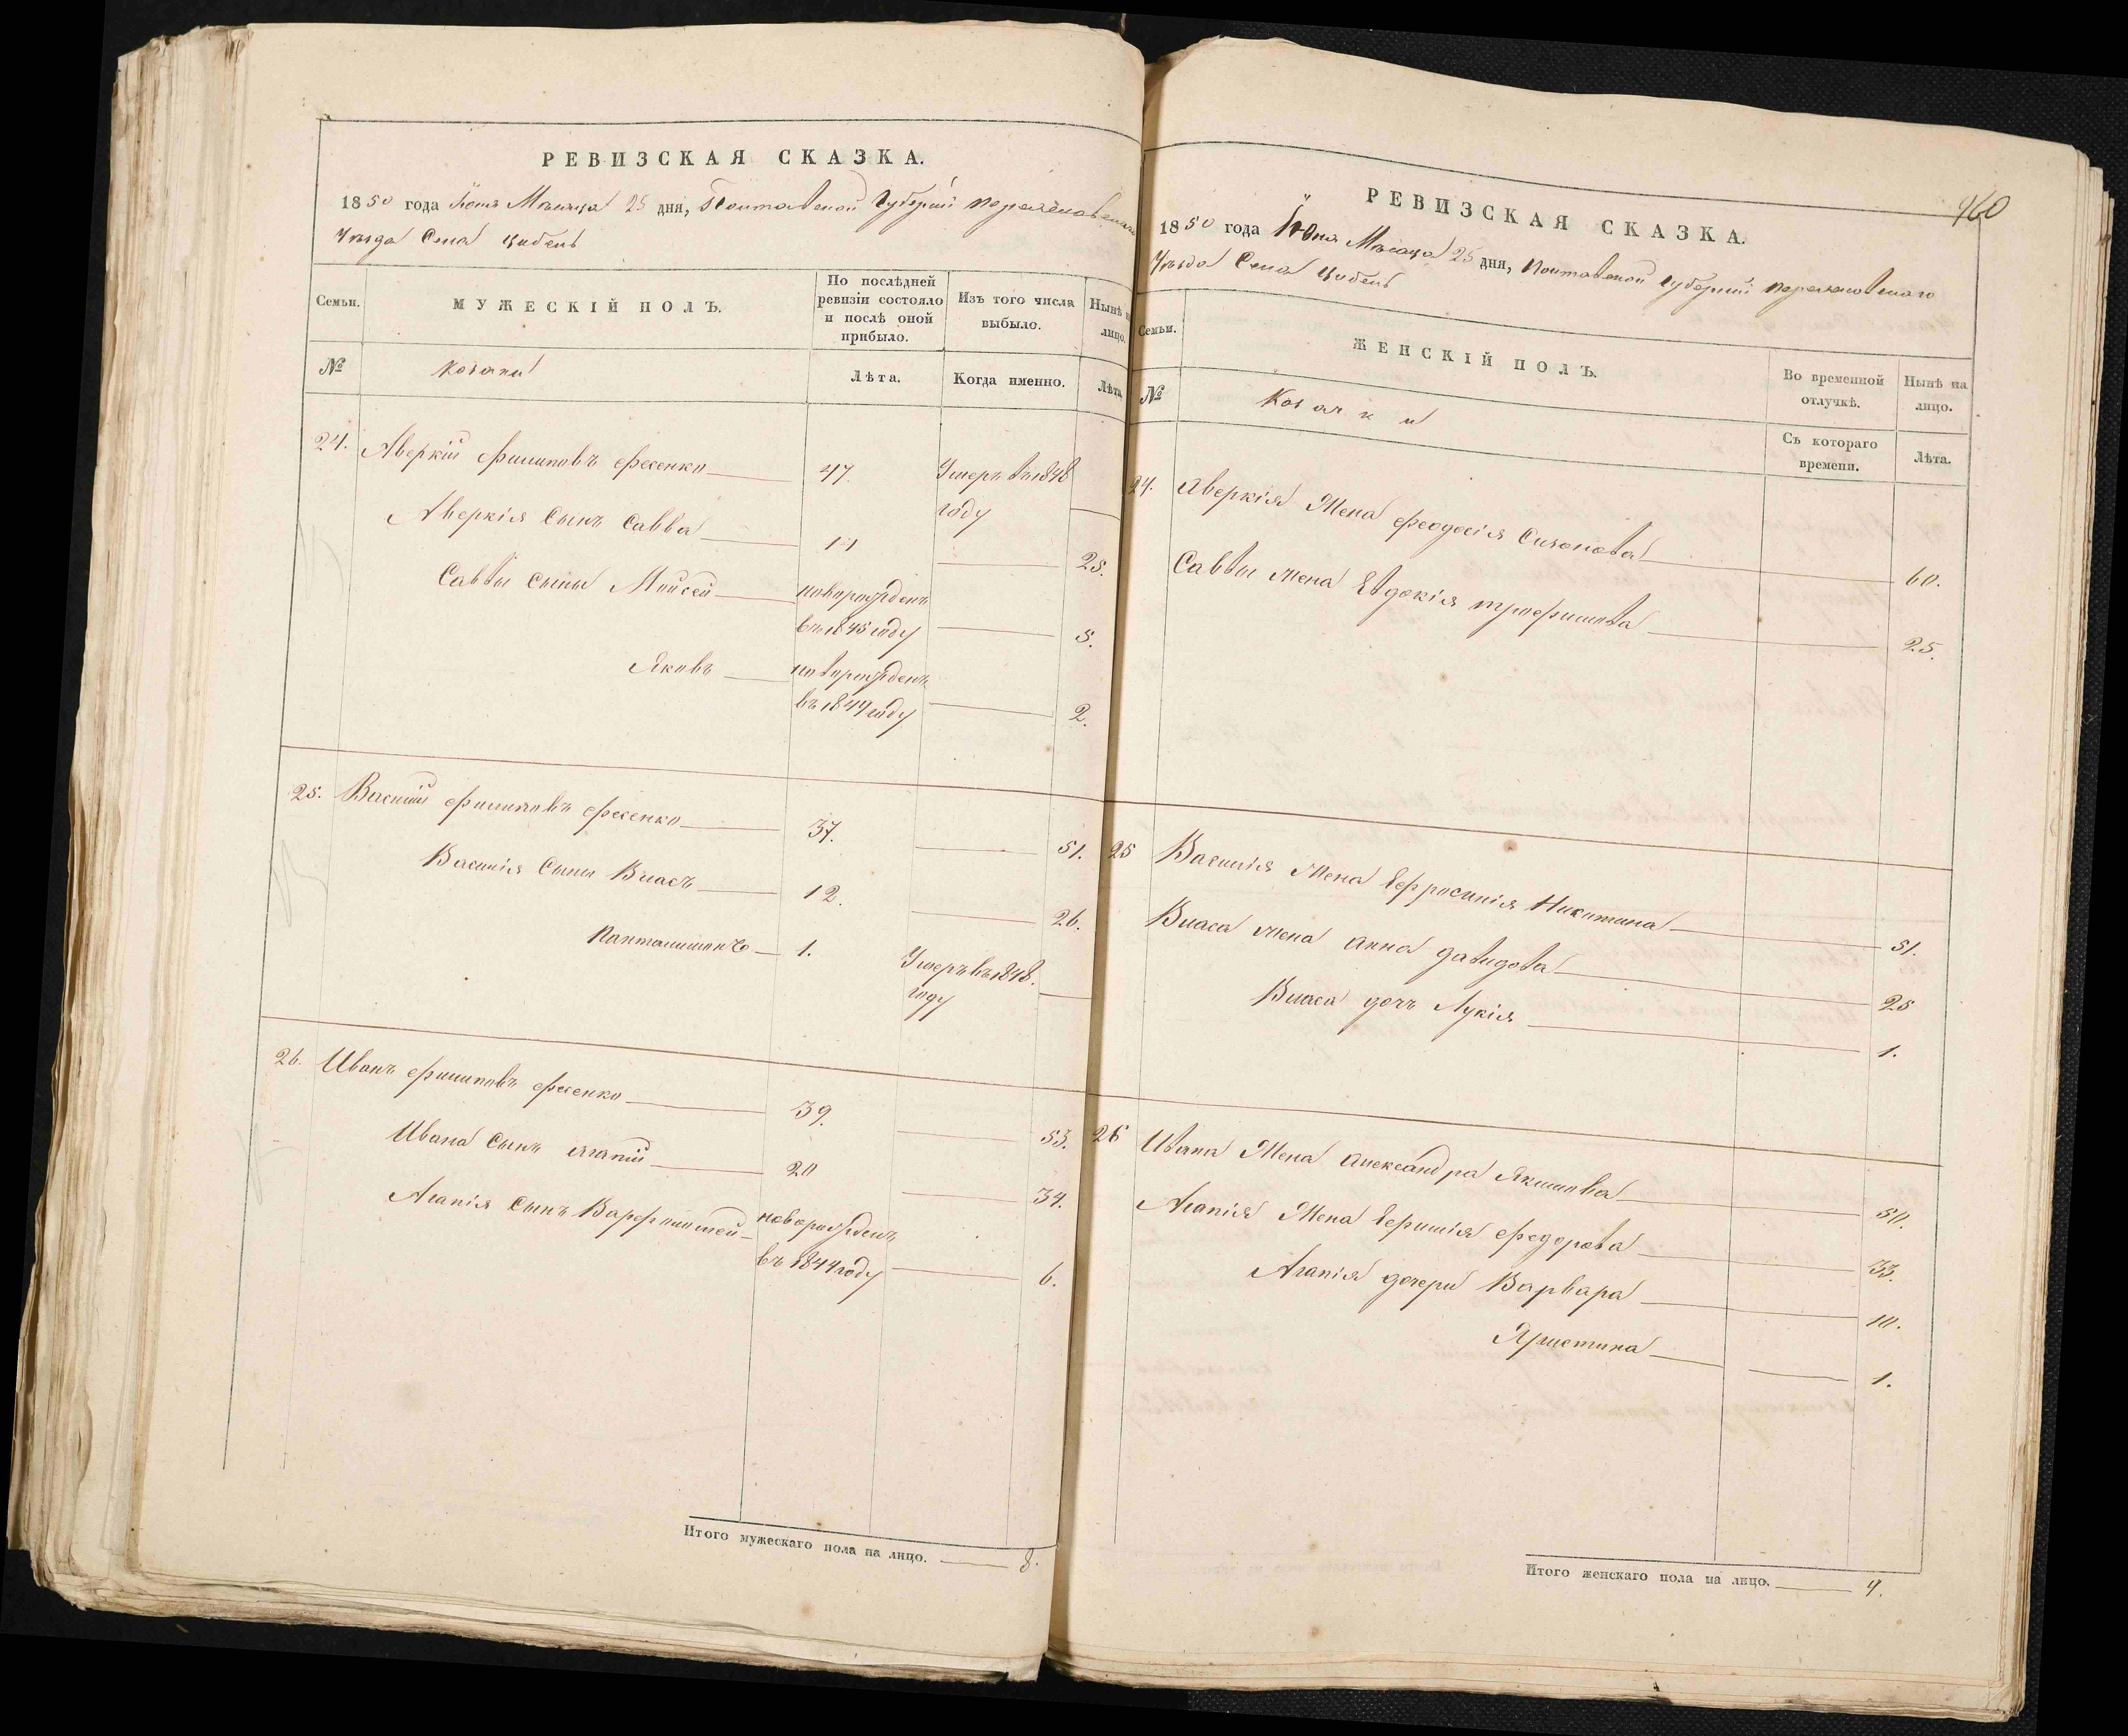 РЕВИЗСКАЯ СКАЗКА.
1850 года Іюня Мѣсяца 25 дня, Полтавской Губерніи Переяславскаго
Уѣзда Села Цибель
Семьи.
МУЖЕСКІЙ ПОЛЪ.
По послѣдней ревизіи состояло и послѣ оной прибыло.
Изъ того числа выбыло.
Нынѣ на лицо.
№
Козаки
Лѣта.
Когда именно.
Лѣта
24. Аверкій Филиповъ Фесенко 47. Умеръ въ 1848
году
Аверкія Сынъ Савва 11 25.
Саввы Сыны Мойсей новорожденъ
въ 1845 году 5.
Яковъ новорожденъ
въ 1849 году 2.
25. Василій Филиповъ Фесенко 37. 51.
Василія Сыны Власъ 12. 26.
Панталимонъ 1. Умеръ въ 1848.
году
26. Иванъ Филиповъ Фесенко 39. 53.
Ивана Сынъ Агапій 20 34.
Агапія Сынъ Варфоломей новорожденъ
въ 1844 году 6.
Итого мужескаго пола на лицо. 8.
460
РЕВИЗСКАЯ СКАЗКА.
1850 года Іюня Мѣсяца 25 дня, Полтавской Губерніи Переяславскаго
Уѣзда Села Цибель
Семьи.
ЖЕНСКІЙ ПОЛЪ.
Во временной отлучкѣ.
Нынѣ на лицо.
№
Козачки
Съ котораго времени.
Лѣта.
24. Аверкія Жена Феодосія Сизонова 60.
Саввы Жена Евдокія Трофимова 25.
25 Василія Жена Ефросинія Никитина 51.
Власа Жена Анна Давидова 25
Власа дочь Лукія 1.
26 Ивана Жена Александра Якимова 50.
Агапія Жена Ефимія Федорова 33.
Агапія дочери Варвара 10.
Христина 1.
Итого женскаго пола на лицо. 9.